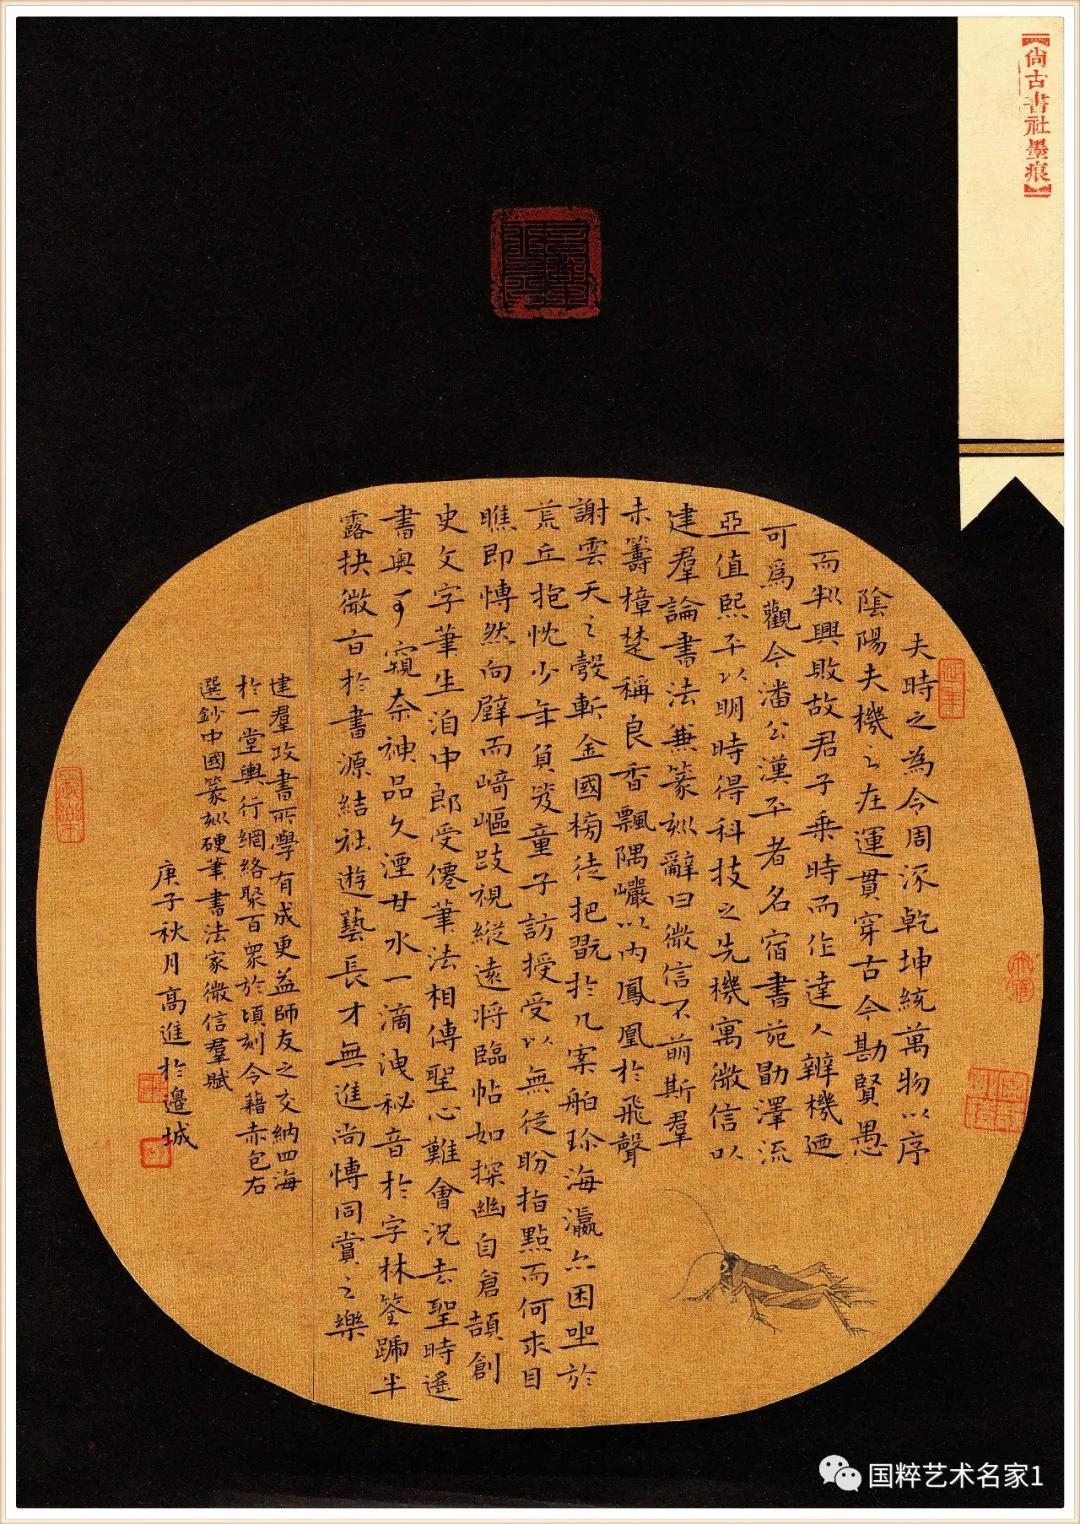 尚古書社墨痕
夫時之為今周泳乾坤統萬物以序
陰陽夫機之在運貫穿古今勘賢愚
而判興敗故君子乘時而作達人辨機廼
可為觀今潘公漢平者名宿書苑勖澤流
亞值熙平以明時得科技之先機寓微信以
建羣論書法兼篆刻辭曰微信不萌斯羣
未籌樟楚稱良香飄隅巘以內鳳凰於飛聲
謝雲天之彀斬金國榜徒把翫於几案舶珍海瀛亦困坐於
荒丘抱忱少年負笈童子訪授受以無從盼指點而何求目
瞧即愽然向壁而崎嶇跂視縱遠將臨帖如探幽自倉頡創
史文字筆生洎中郎受僊筆法相傳聖心難會況去聖時遙
書奧可窺奈神品久湮甘水一滴洩秘音於字林筌蹏半
露抉微言於書源結社遊藝長才無進尚愽同賞之樂
建羣攻書所學有成更益師友之交納四海
於一堂輿行網絡聚百眾於頃刻今藉赤包右
選鈔中國篆刻硬筆書法家微信羣賦
庚子秋月高進於邊城
国粹艺术名家1